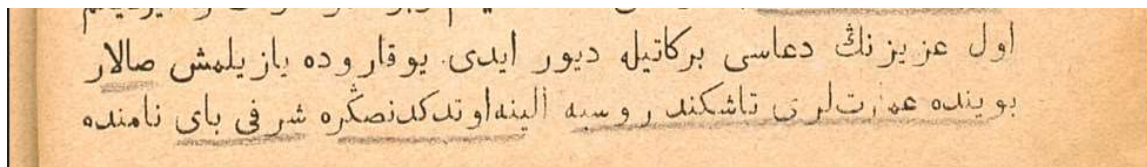 اول عزیزنڭ دعاسی برکاتیله دیور ایدی. یوقاروده یازیلمش صالار
بوینده عمارت‌لری تاشکند روسیه الینه اوتدکدنصڭره شرفی بای نامنده